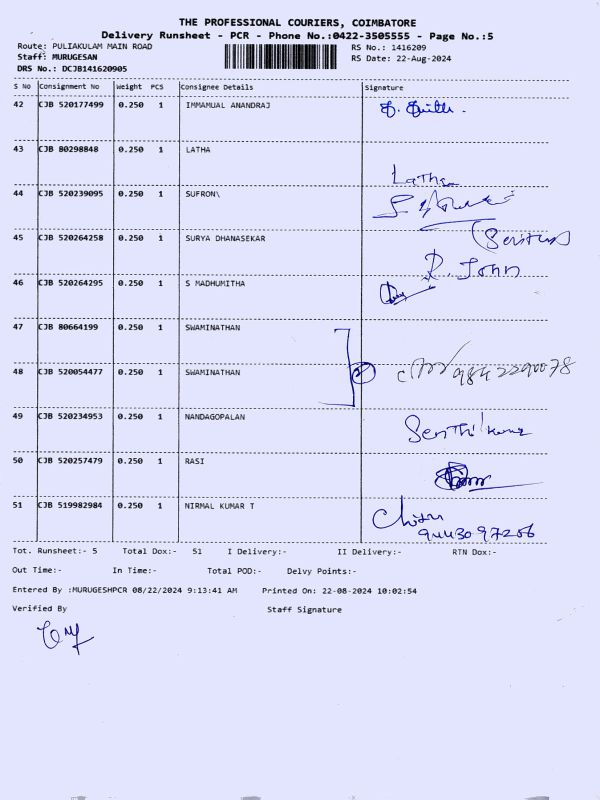 THE PROFESSIONAL COURIERS, COIMBATORE
Delivery Runsheet - PCR - Phone No.:0422-3505555 - Page No.:5
Route: PULIAKULAM MAIN ROAD RS No.: 1416209
Staff: MURUGESAN RS Date: 22-Aug-2024
DRS No.: DCJB141620905
S No Consignment No Weight PCS Consignee Details Signature
42 CJB 520177499 0.250 1 IMMAMUAL ANANDRAJ
43 CJB 80298848 0.250 1 LATHA
Latha
44 CJB 520239095 0.250 1 SUFRON\
45 CJB 520264258 0.250 1 SURYA DHANASEKAR
R. John
46 CJB 520264295 0.250 1 S MADHUMITHA
47 CJB 80664199 0.250 1 SWAMINATHAN
48 CJB 520054477 0.250 1 SWAMINATHAN 2
49 CJB 520234953 0.250 1 NANDAGOPALAN
Senthil kumar
50 CJB 520257479 0.250 1 RASI
51 CJB 519982984 0.250 1 NIRMAL KUMAR T
Tot. Runsheet:- 5 Total Dox:- 51 I Delivery:- II Delivery:- RTN Dox:-
Out Time:- In Time:- Total POD:- Delvy Points:-
Entered By :MURUGESHPCR 08/22/2024 9:13:41 AM Printed On: 22-08-2024 10:02:54
Verified By Staff Signature